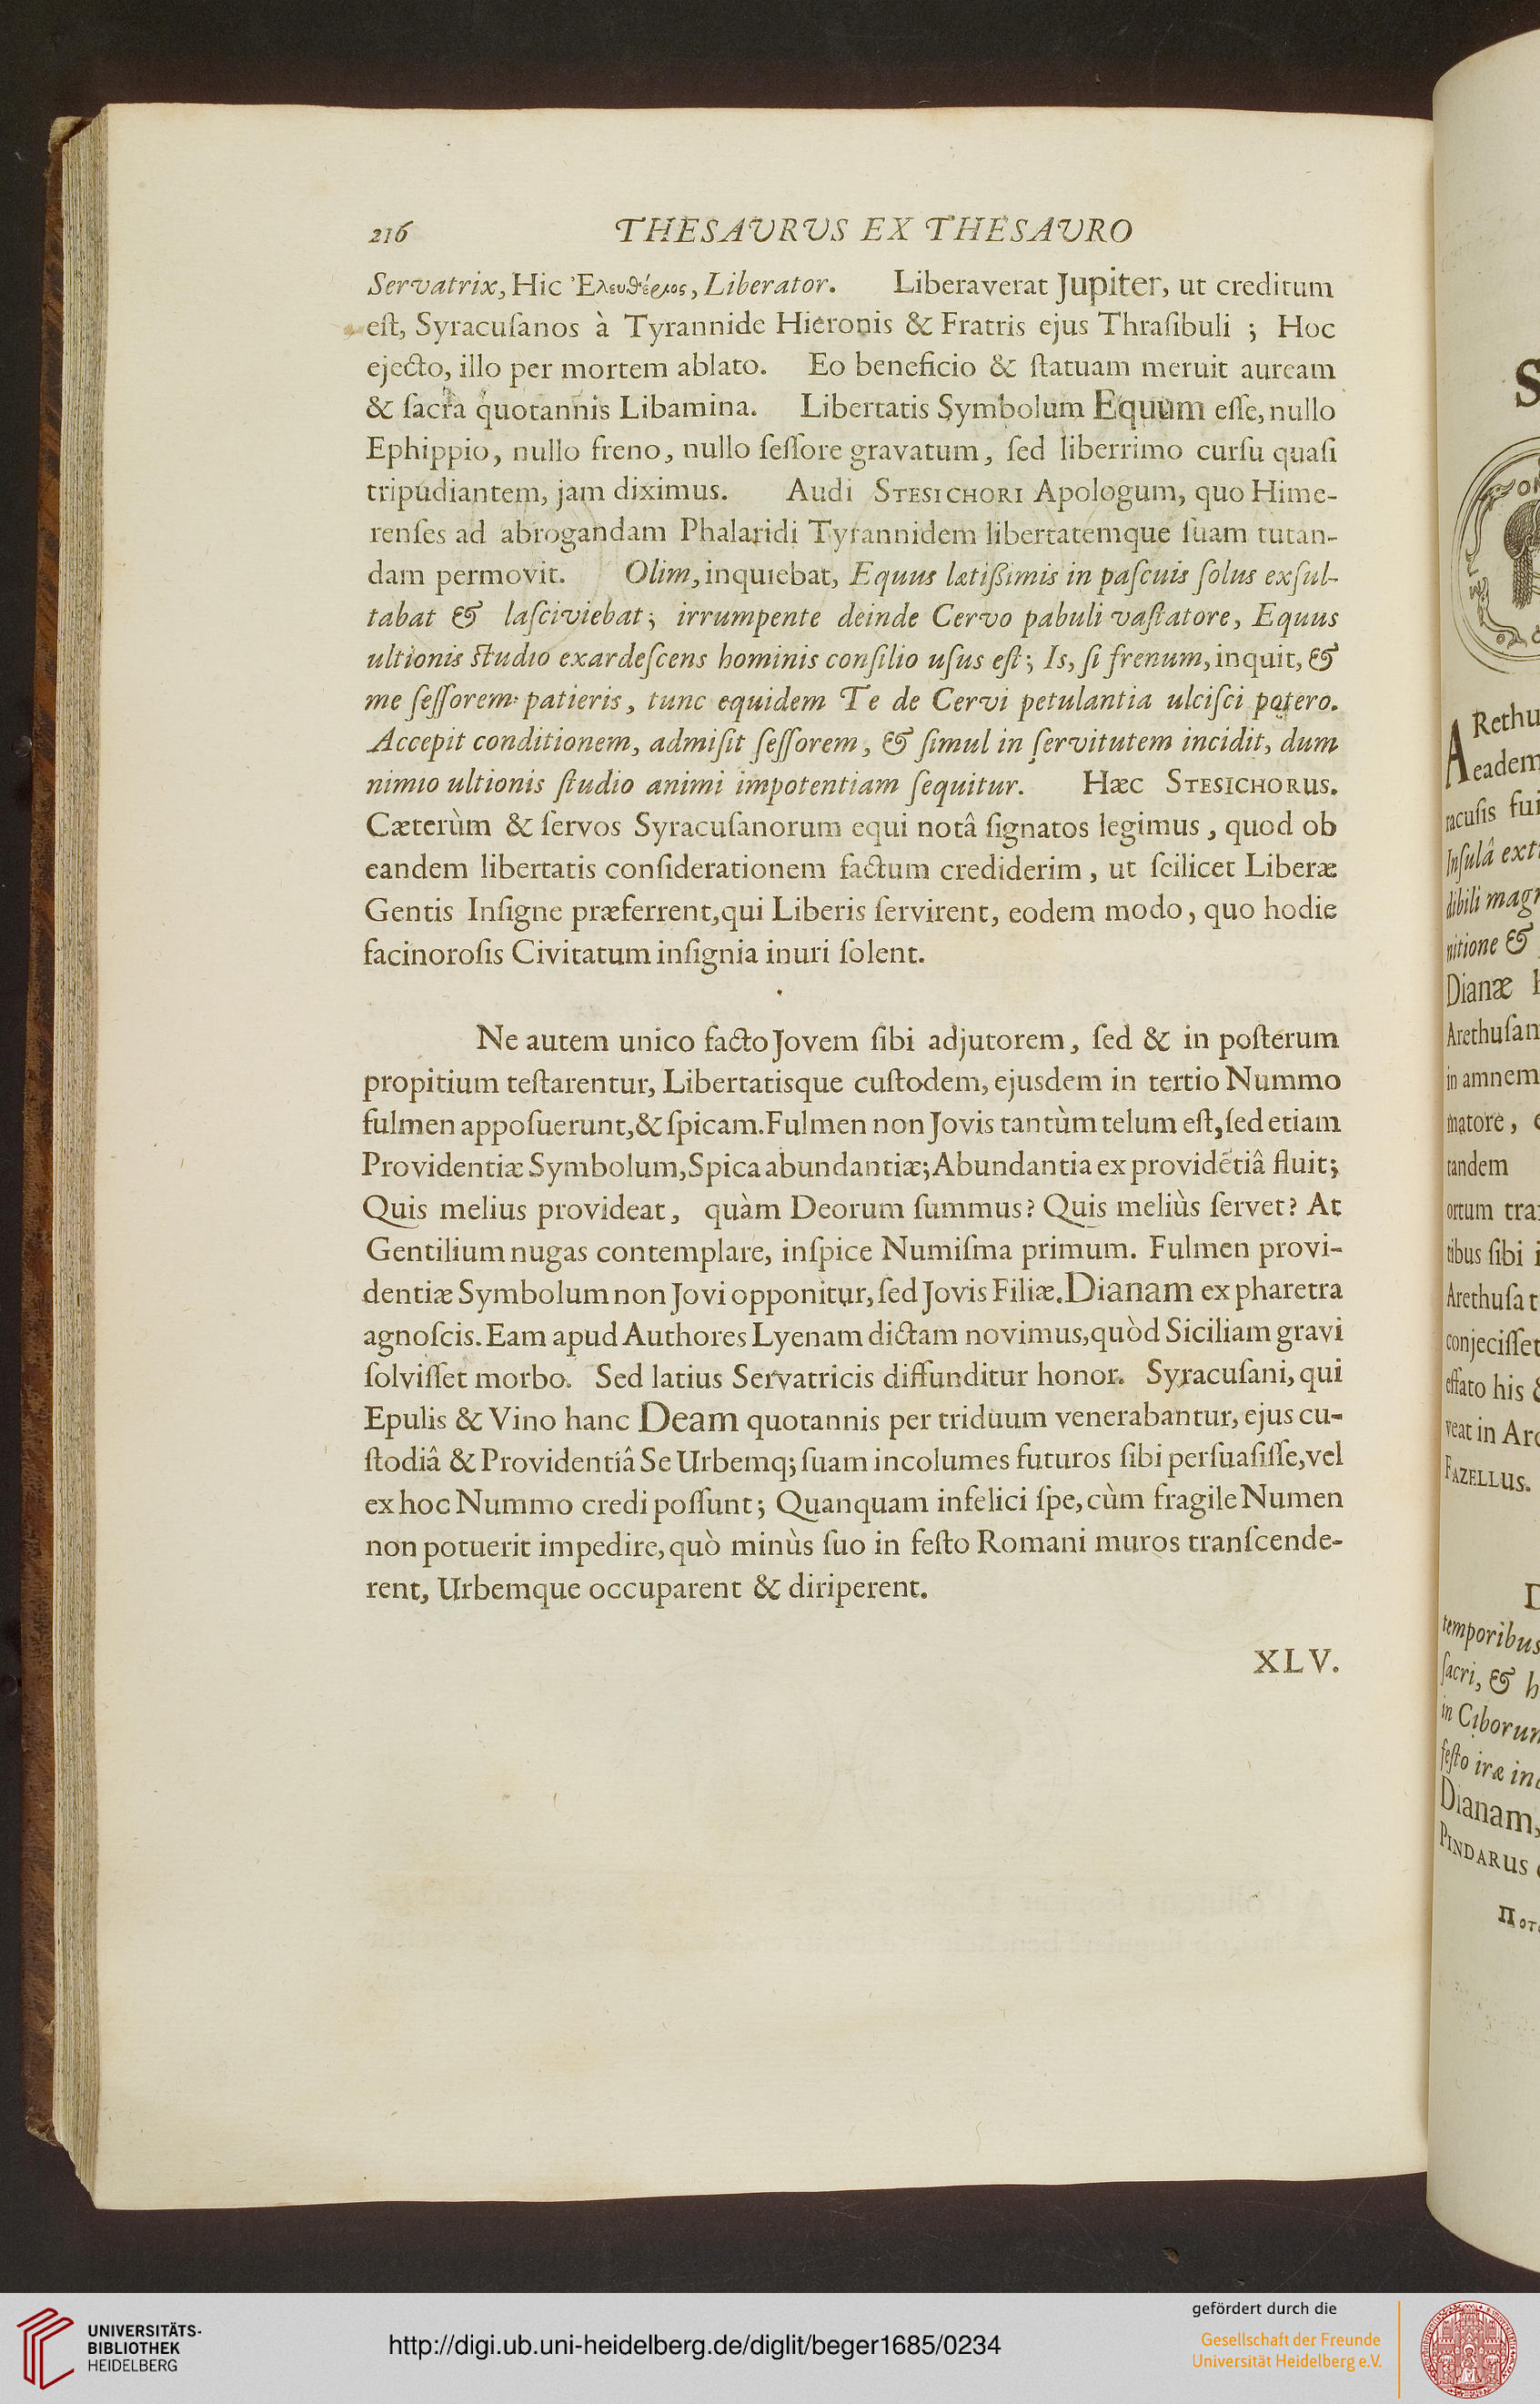 216 THESAVRVS EX THESAVRO
Servatrix, Hic Ἐλευθέριος, Liberator. Liberaverat Jupiter, ut creditum
eſt, Syracuſanos à Tyrannide Hieronis & Fratris ejus Thraſibuli ; Hoc
ejecto, illo per mortem ablato. Eo beneficio & ſtatuam meruit auream
& ſacra quotannis Libamina. Libertatis Symbolum Equum eſſe, nullo
Ephippio, nullo freno, nullo ſeſſore gravatum, ſed liberrimo curſu quaſi
tripudiantem, jam diximus. Audi STESICHORI Apologum, quo Hime-
renſes ad abrogandam Phalaridi Tyrannidem libertatemque ſuam tutan-
dam permovit. Olim, inquiebat, Equus lætißimis in paſcuis ſolus exſul-
tabat & laſciviebat; irrumpente deinde Cervo pabuli vaſtatore, Equus
ultionis ſtudio exardeſcens hominis conſilio uſus eſt; Is, ſi frenum, inquit, &
me ſeſſorem patieris, tunc equidem Te de Cervi petulantia ulciſci potero.
Accepit conditionem, admiſit ſeſſorem, & ſimul in ſervitutem incidit, dum
nimio ultionis ſtudio animi impotentiam ſequitur. Hæc STESICHORUS.
Cæterùm & ſervos Syracuſanorum equi notâ ſignatos legimus, quod ob
eandem libertatis conſiderationem factum crediderim, ut ſcilicet Liberæ
Gentis Inſigne præferrent, qui Liberis ſervirent, eodem modo, quo hodie
facinoroſis Civitatum inſignia inuri ſolent.
Ne autem unico facto Jovem ſibi adjutorem, ſed & in poſterum
propitium teſtarentur, Libertatisque cuſtodem, ejusdem in tertio Nummo
fulmen appoſuerunt, & ſpicam. Fulmen non Jovis tantùm telum eſt, ſed etiam
Providentiæ Symbolum, Spica abundantiæ; Abundantia ex providẽtiâ fluit;
Quis melius provideat, quàm Deorum ſummus? Quis meliùs ſervet? At
Gentilium nugas contemplare, inſpice Numiſma primum. Fulmen provi-
dentiæ Symbolum non Jovi opponitur, ſed Jovis Filiæ. Dianam ex pharetra
agnoſcis. Eam apud Authores Lyenam dictam novimus, quòd Siciliam gravi
ſolviſſet morbo. Sed latius Servatricis diffunditur honor. Syracuſani, qui
Epulis & Vino hanc Deam quotannis per triduum venerabantur, ejus cu-
ſtodiâ & Providentiâ Se Urbemq; ſuam incolumes futuros ſibi perſuaſiſſe, vel
ex hoc Nummo credi poſſunt; Quanquam infelici ſpe, cùm fragile Numen
non potuerit impedire, quò minùs ſuo in feſto Romani muros tranſcende-
rent, Urbemque occuparent & diriperent.
XLV.
S
ARethu
eadem
racuſis fui
Inſulâ ext
dibili mag
nitione &
Dianæ
Arethuſam
in amnem
matore,
tandem
ortum tra
tibus ſibi i
Arethuſa t
conjeciſſet
effato his &
veat in Are
FAZELLUS.
temporibus
ſacri, & h
in Ciborum
feſto iræ in
Dianam,
PINDARUS
Ποτ
UNIVERSITÄTS-
BIBLIOTHEK
HEIDELBERG
http://digi.ub.uni-heidelberg.de/diglit/beger1685/0234
gefördert durch die
Gesellschaft der Freunde
Universität Heidelberg e.V.